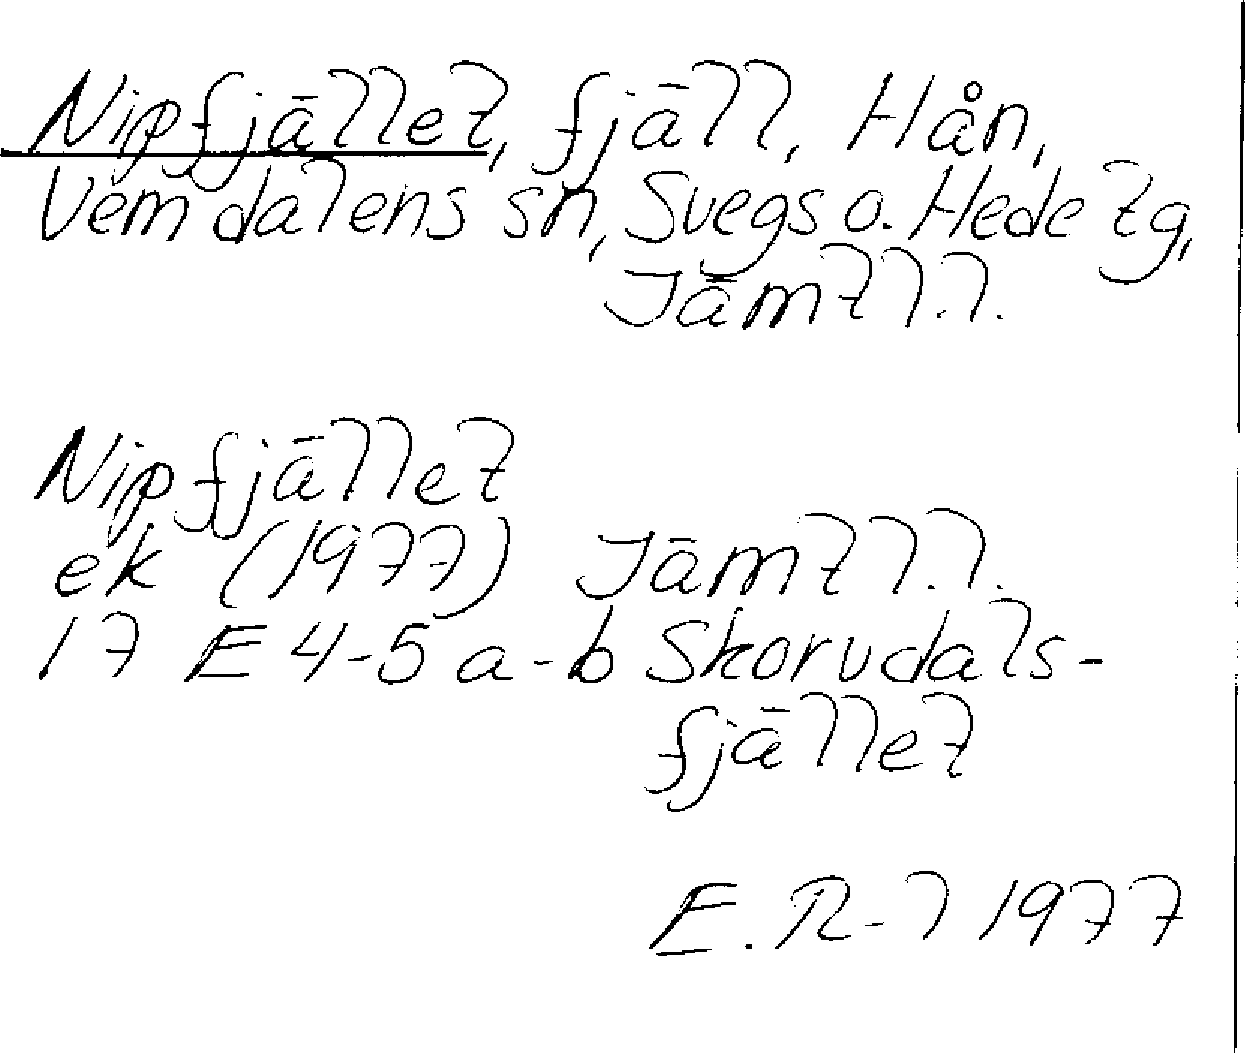 Nipfjället, fjäll, Hån,
Vemdalens sn, Svegs o. Hede tg,
Jämtl.l.
Nipfjället
ek (1977) Jämtl.l.
17 E 4-5 a-b Skorvdals-
fjället
E. R-l 1977